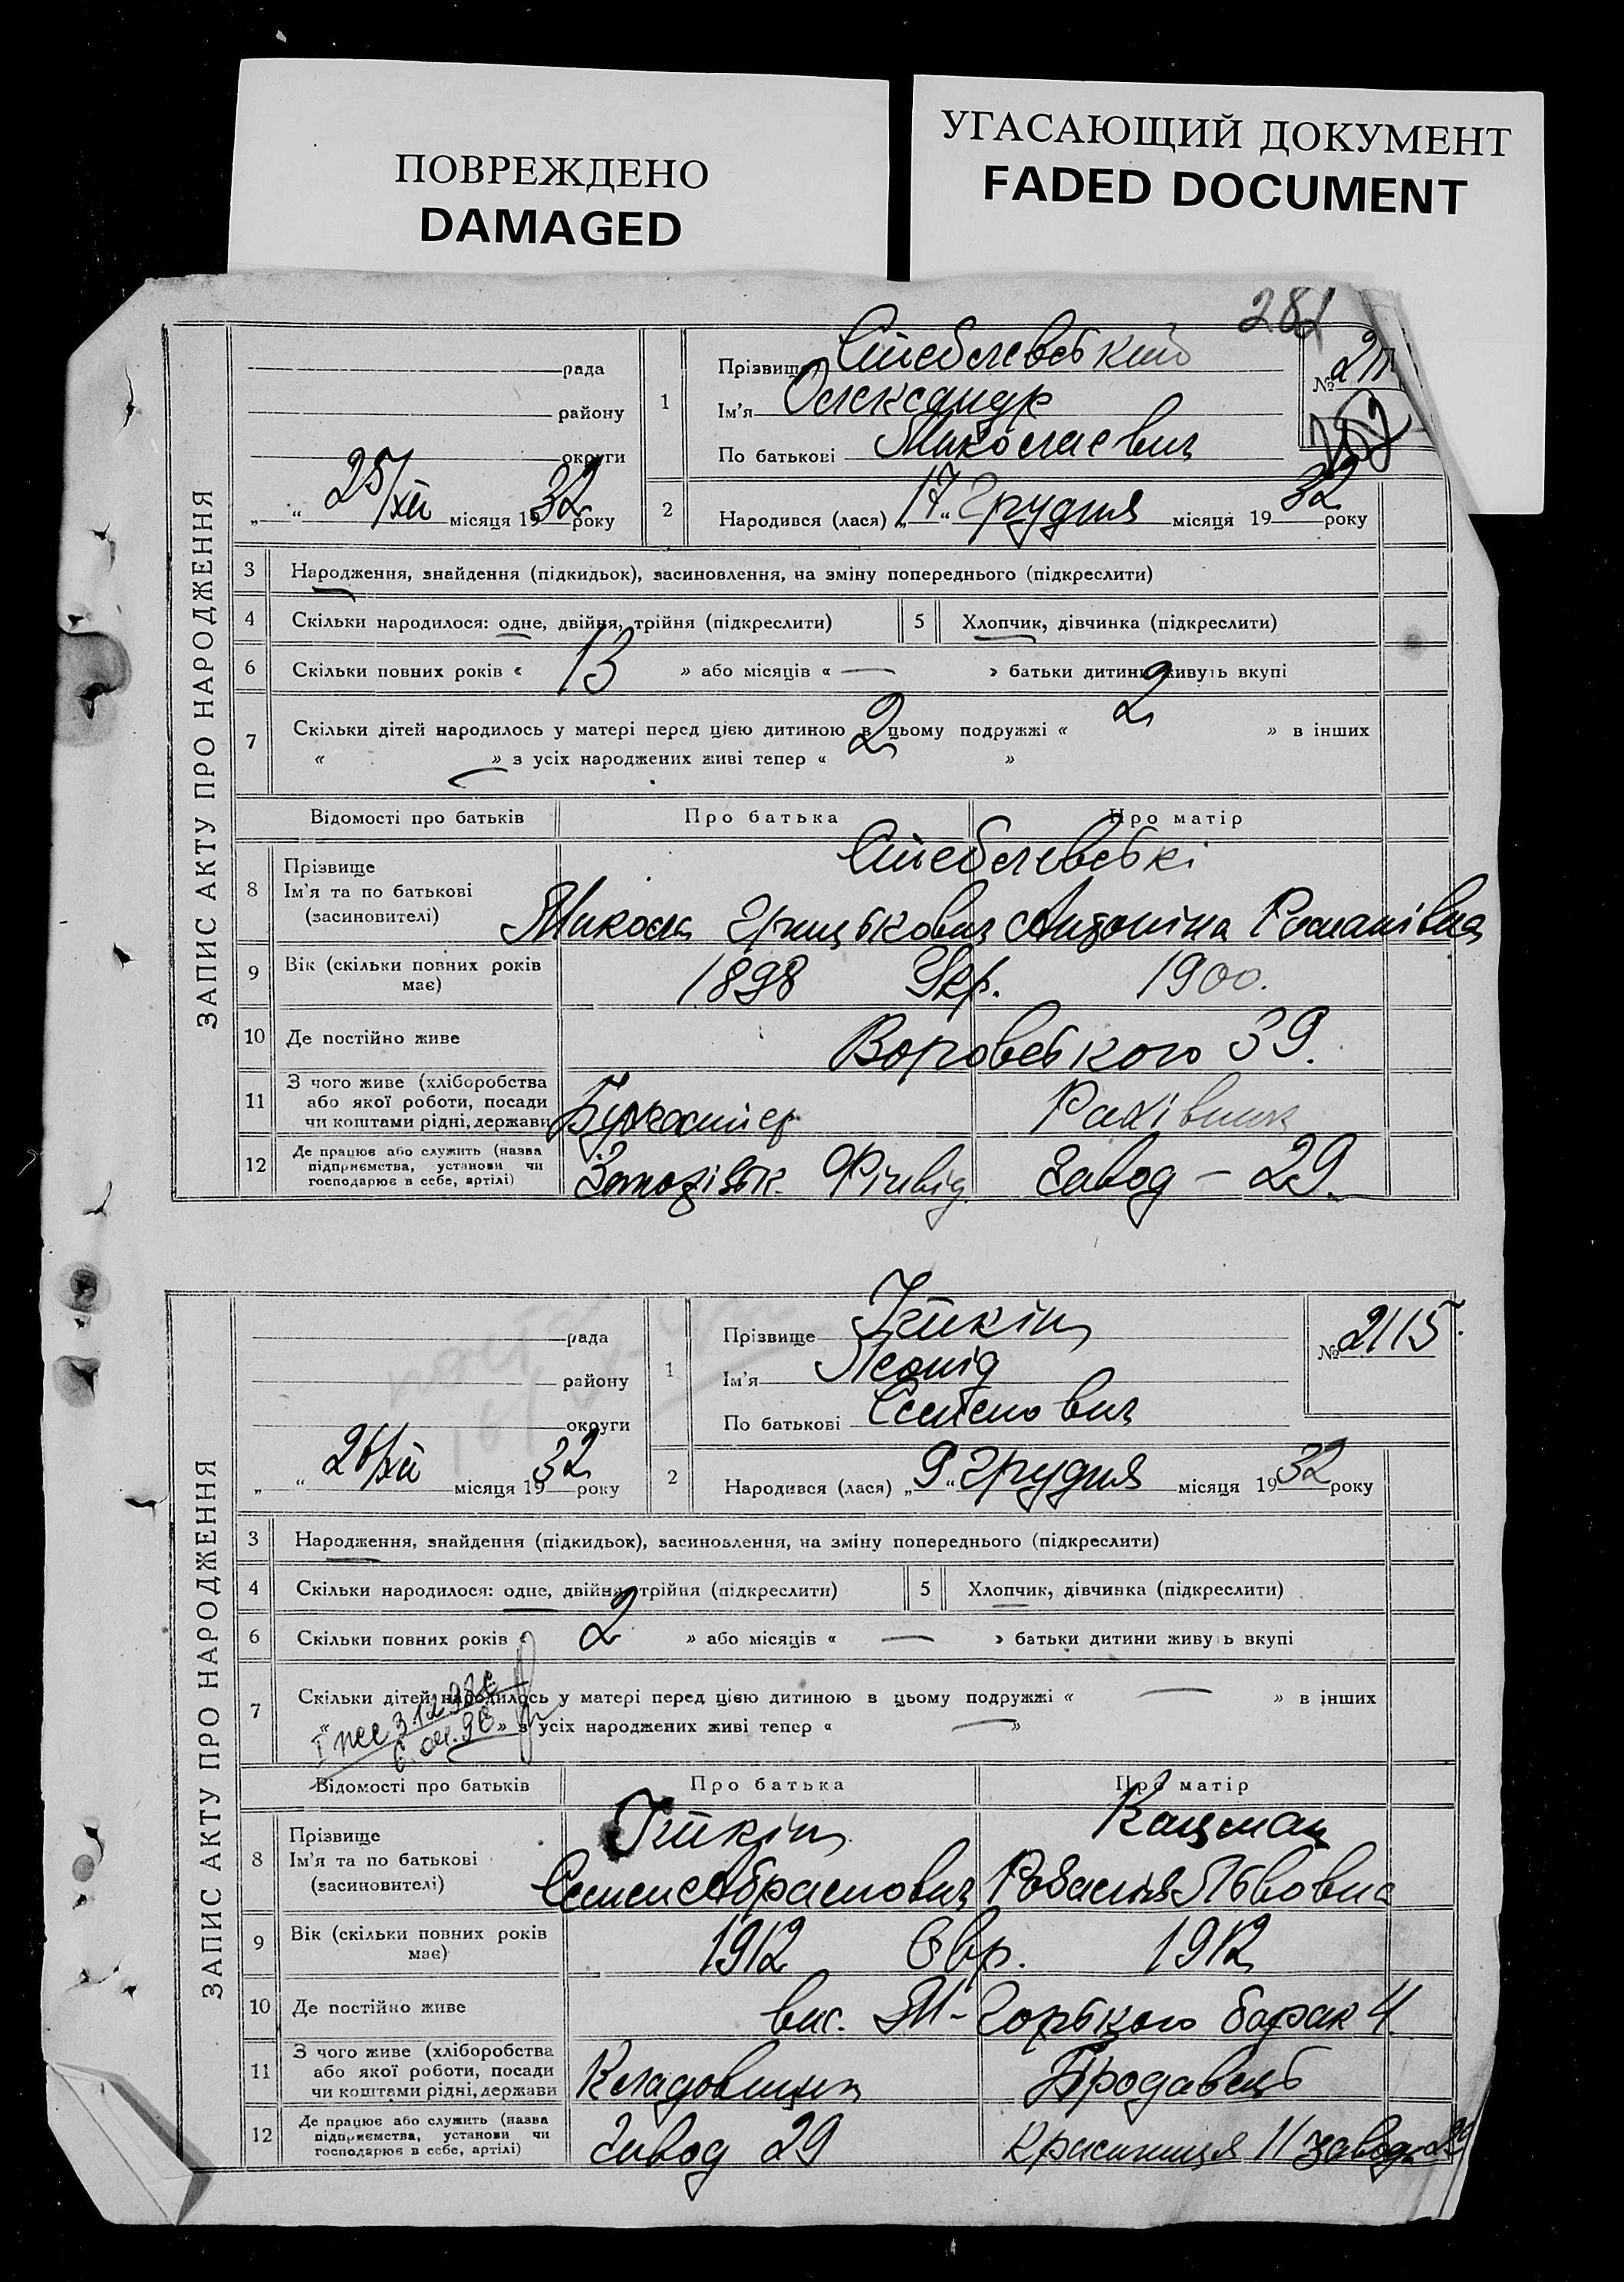 ПОВРЕЖДЕНО
DAMAGED
УГАСАЮЩИЙ ДОКУМЕНТ
FADED DOCUMENT
281
ЗАПИС АКТУ ПРО НАРОДЖЕННЯ
рада
району
округи
„ “ 25/XII місяця 1932 року
1
Прізвище Стеблевський
Ім'я Олександр
По батькові Миколаевич
№
2
Народився (лася) „17“ Грудня місяця 1932 року
3 Народження, знайдення (підкидьок), засиновлення, на зміну попереднього (підкреслити)
4 Скільки народилося: одне, двійня, трійня (підкреслити) 5 Хлопчик, дівчинка (підкреслити)
6 Скільки повних років « 13 » або місяців « — » батьки дитини живуть вкупі
7 Скільки дітей народилось у матері перед цією дитиною в цьому подружжі « 2 » в інших
« — » з усіх народжених живі тепер « 2 »
Відомості про батьків Про батька Про матір
8 Прізвище
Ім'я та по батькові
(засиновителі)
Стеблевські
Микола Грицькович Антоніна Романівна
9 Вік (скільки повних років має) 1898 Укр. 1900.
10 Де постійно живе Воровського 39.
11 З чого живе (хліборобства
або якої роботи, посади
чи коштами рідні, держави
Бухгалтер Рахівник
12 Де працює або служить (назва
підприємства, установи чи
господарює в себе, артілі)
Фінвід. Завод – 29.
ЗАПИС АКТУ ПРО НАРОДЖЕННЯ
рада
району
округи
„ “ 26/XII місяця 1932 року
1
Прізвище Іткін
Ім'я Леонід
По батькові Семенович
№ 2115.
2
Народився (лася) „9“ Грудня місяця 1932 року
3 Народження, знайдення (підкидьок), засиновлення, на зміну попереднього (підкреслити)
4 Скільки народилося: одне, двійня, трійня (підкреслити) 5 Хлопчик, дівчинка (підкреслити)
6 Скільки повних років « 2 » або місяців « — » батьки дитини живуть вкупі
7 Скільки дітей народилось у матері перед цією дитиною в цьому подружжі « — » в інших
« » з усіх народжених живі тепер « — »
Відомості про батьків Про батька Про матір
8 Прізвище
Ім'я та по батькові
(засиновителі)
Іткін Кацман
Семен Абрамович Львовна
9 Вік (скільки повних років має) 1912 Євр. 1912
10 Де постійно живе вис. М-Горького барак 4
11 З чого живе (хліборобства
або якої роботи, посади
чи коштами рідні, держави
Кладовщик Продавець
12 Де працює або служить (назва
підприємства, установи чи
господарює в себе, артілі)
Завод 29 Крамниця 11 завода 29